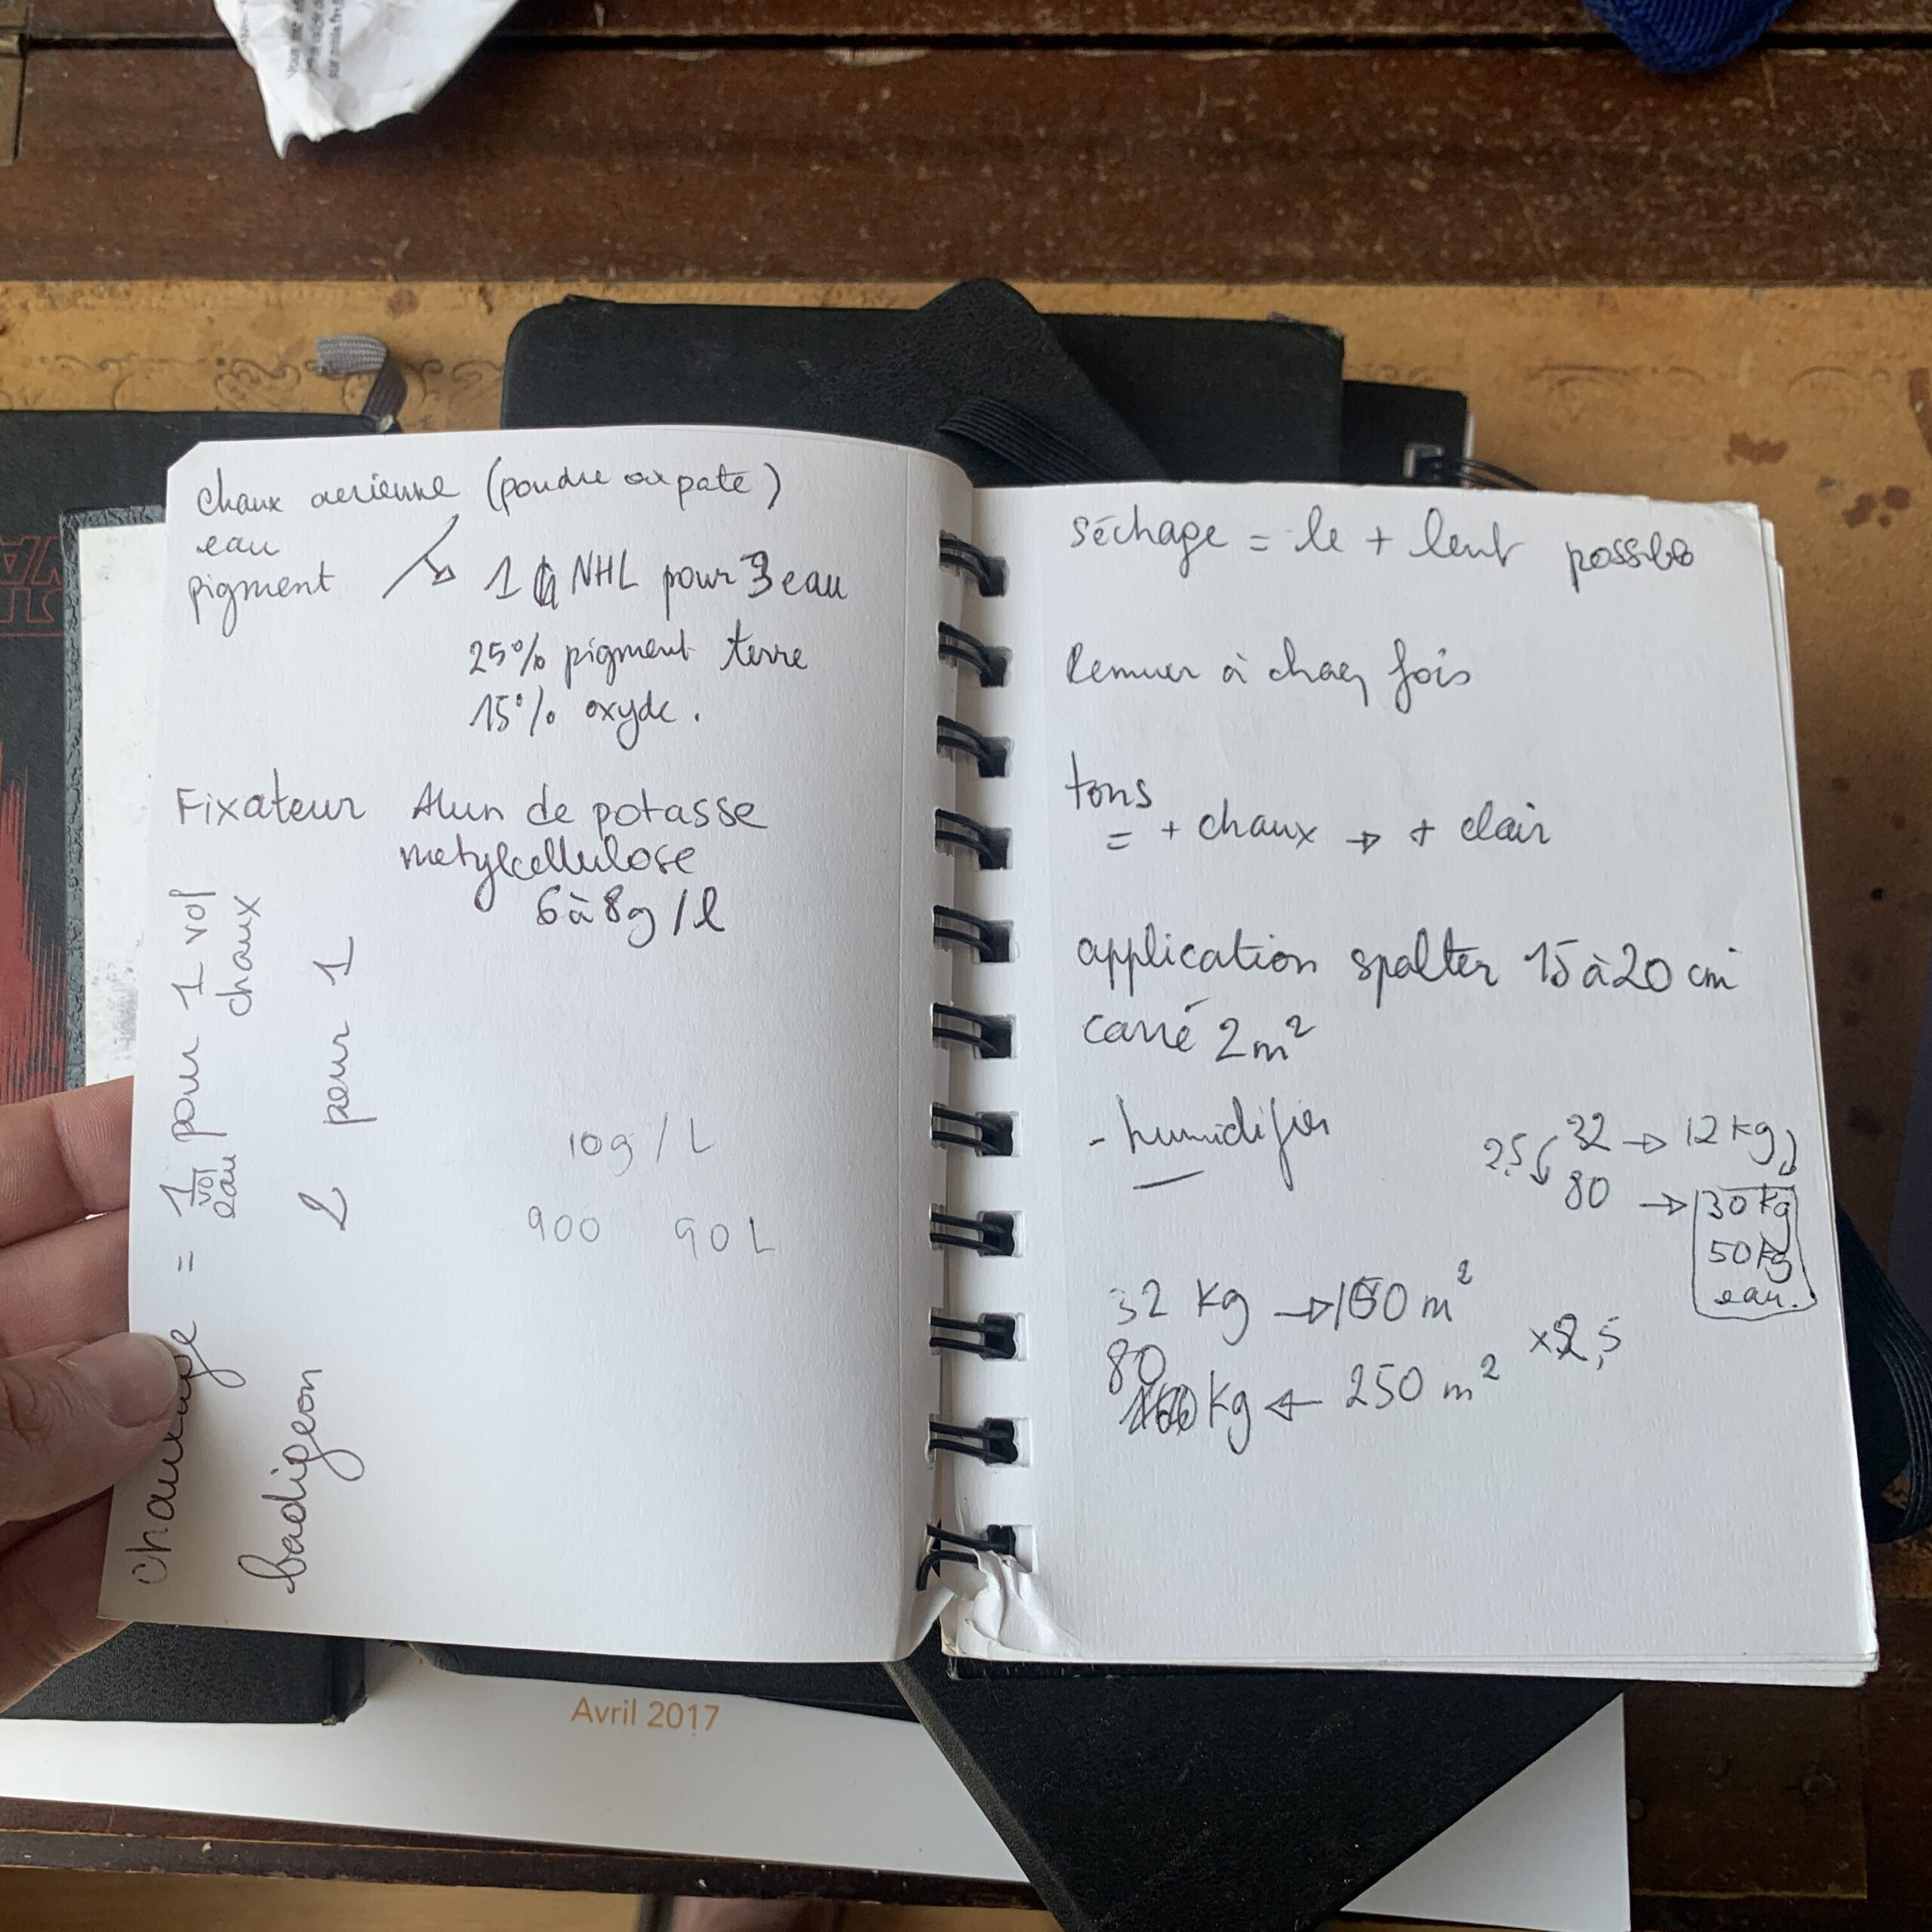 chaux aerienne (poudre ou pate)
eau
pigment
1 NHL pour 3 eau
25% pigment terre
15% oxyde.
Fixateur Alun de potasse
metylcellulose
6 à 8g/l
chaulage = 1 vol eau pour 1 vol chaux
badigeon 2 pour 1
10g/L
900 90L
séchage = le + lent possible
Remuer à chaq fois
tons
= + chaux → + clair
application spalter 15 à 20 cm
carré 2m²
- humidifier
2,5 32 → 12 kg
80 → 30 kg
50 kg
eau.
32 kg → 100 m²
x2,5
80
kg ← 250 m²
Avril 2017